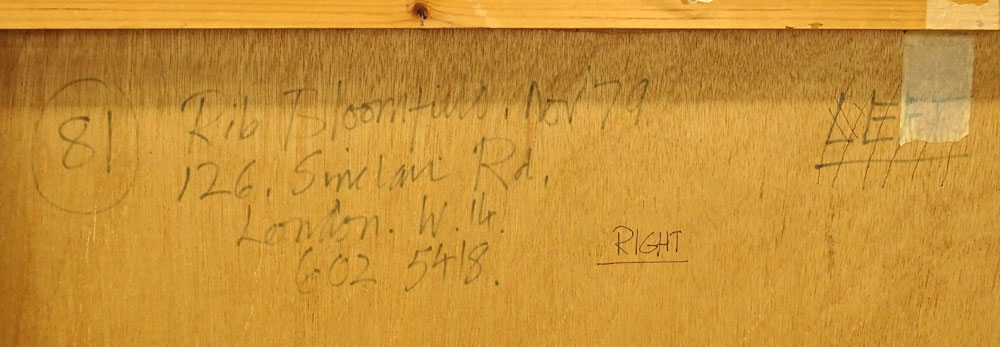 81
Rib Bloomfield. Nov 79.
126. Sinclair Rd.
London. W.14.
602 5418.
RIGHT
LEFT